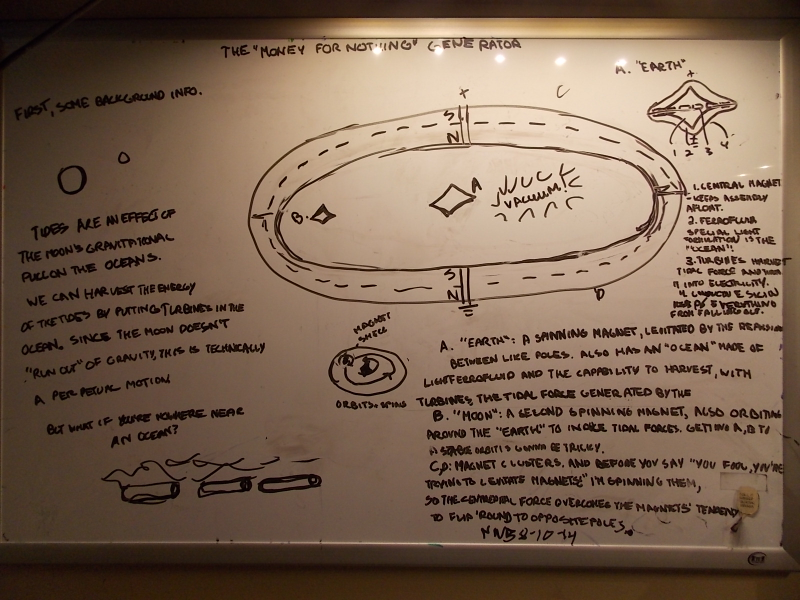 THE "MONEY FOR NOTHING" GENERATOR
FIRST, SOME BACKGROUND INFO.
TIDES ARE AN EFFECT OF
THE MOON'S GRAVITATIONAL
PULL ON THE OCEANS.
WE CAN HARVEST THE ENERGY
OF THE TIDES BY PUTTING TURBINES IN THE
OCEAN. SINCE THE MOON DOESN'T
"RUN OUT" OF GRAVITY, THIS IS TECHNICALLY
A PERPETUAL MOTION
BUT WHAT IF YOU'RE NOWHERE NEAR
AN OCEAN?
+
C
S
N
A
B.
VACUUM!
S
N
D
MAGNET
SHELL
ORBITS + SPINS
A. "EARTH"
+
1 2 3 4
1. CENTRAL MAGNET
- KEEPS ASSEMBLY
AFLOAT.
2. FERROFLUID
SPECIAL LIGHT
FORMULATION IS THE
"OCEAN"!
3. TURBINES HARVEST
TIDAL FORCE AND TURN
IT INTO ELECTRICITY.
4.
KEEPS EVERYTHING
FROM FALLING OFF.
A. "EARTH": A SPINNING MAGNET, LEVITATED BY THE
BETWEEN LIKE POLES. ALSO HAS AN "OCEAN" MADE OF
LIGHT FERROFLUID AND THE CAPABILITY TO HARVEST, WITH
TURBINES, THE TIDAL FORCE GENERATED BY THE
B. "MOON": A SECOND SPINNING MAGNET, ALSO ORBITING
AROUND THE "EARTH" TO INDUCE TIDAL FORCES. GETTING A, B TO
A STABLE ORBIT IS GONNA BE TRICKY.
C, D: MAGNET CLUSTERS, AND BEFORE YOU SAY "YOU FOOL, YOU'RE
TRYING TO LEVITATE MAGNETS!" I'M SPINNING THEM,
SO THE FORCE OVERCOMES THE MAGNETS'
TO FLIP 'ROUND TO OPPOSITE POLES.
8-10-14